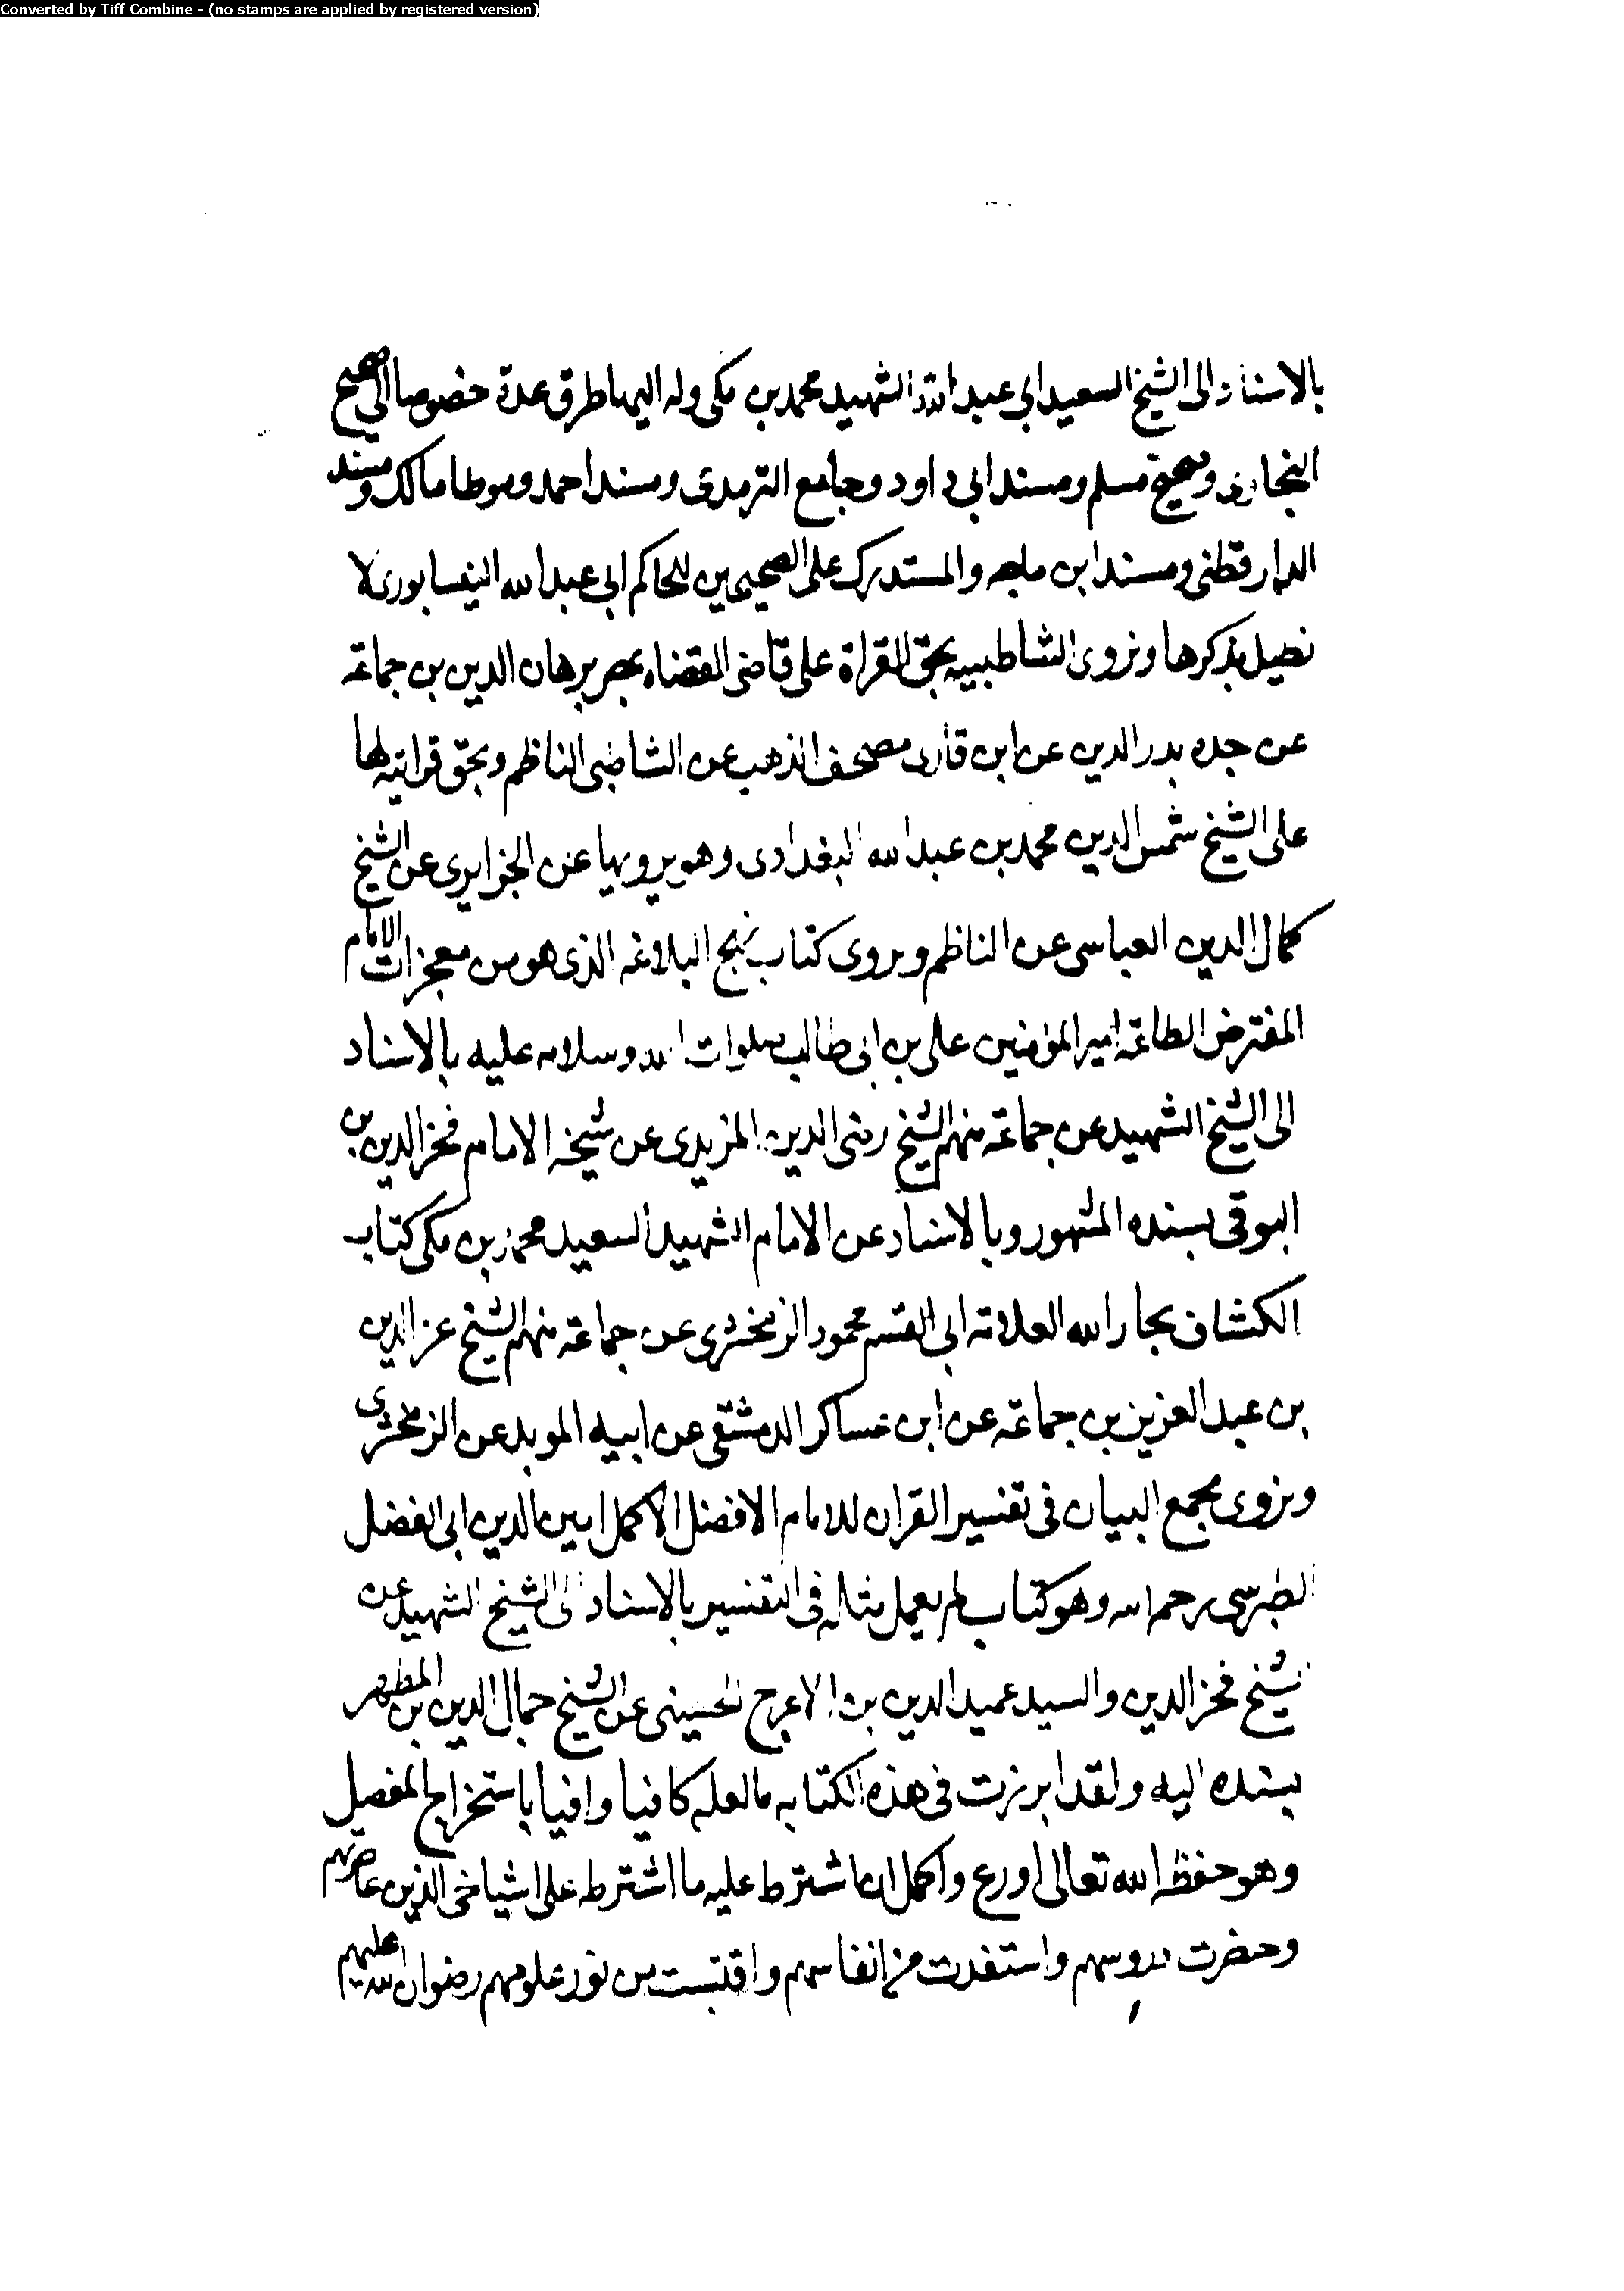 Converted by Tiff Combine - (no stamps are applied by registered version)
بالاسناد الى الشيخ السعيد ابي عبد الله الشهيد محمد بن مكي وله اليها طرق عدة خصوصا الى صحيح
البخاري وصحيح مسلم ومسند ابي داود وجامع الترمدى ومسند احمد وموطا مالك ومسند
الدارقطنى ومسند ابن ماجه والمستدرك على الصحيحين للحاكم ابي عبد الله النيسابورى لا
نصيل بذكرها ونروى الشاطبيه بحق القراة على قاضى القضاه بمصر برهان الدين بن جماعة
عن جده بدر الدين عن ابن قارى مصحف الذهب عن الشاطبى الناظم وبحق قراتيه لها
على الشيخ شمس الدين محمد بن عبد الله البغدادى وهو يرويها عن الجزايرى عن الشيخ
كمال الدين العباسى عن الناظم ونروى كتاب نهج البلاغه الذى هو من معجزات الامام
المفترض الطاعة امير المؤمنين على بن ابى طالب صلوات الله وسلامه عليه بالاسناد
الى الشيخ الشهيد عن جماعة منهم الشيخ رضى الدين المزيدى عن شيخه الامام فخر الدين بن
البوقى بسنده المشهور وبالاسناد عن الامام الشهيد السعيد محمد بن مكى كتاب
الكشاف بجار الله العلامة ابى القسم محمود الزمخشرى عن جماعة منهم الشيخ عز الدين
بن عبد العزيز بن جماعة عن ابن عساكر الدمشقى عن ابيه الموبد عن الزمخشرى
ونروى مجمع البيان فى تفسير القران للامام الافضل الاكمل امين الدين ابى الفضل
الطبرسى رحمه الله وهو كتاب لم يعمل مثله فى التفسير بالاسناد الى الشيخ الشهيد عن
الشيخ فخر الدين والسيد عميد الدين بن الاعرج الحسينى عن الشيخ جمال الدين بن المطهر
بسنده اليه ولقد ابرزت فى هذه الكتابه ما لعله كافيا وافيا باستخراج المفصيل
وهو حفظه الله تعالى اورع واكمل ان اشترط عليه ما اشترط على اشياخى الذين عاصرتهم
وحضرت دروسهم واستفدت من انفاسهم واقتبست من نور علومهم رضوان الله عليهم